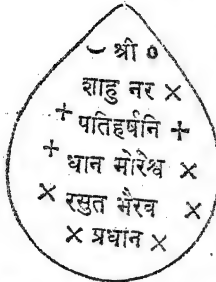 श्री
शाहु नर
पतिहर्षनि
धान मोरेश्व
रसुत भैरव
प्रधान